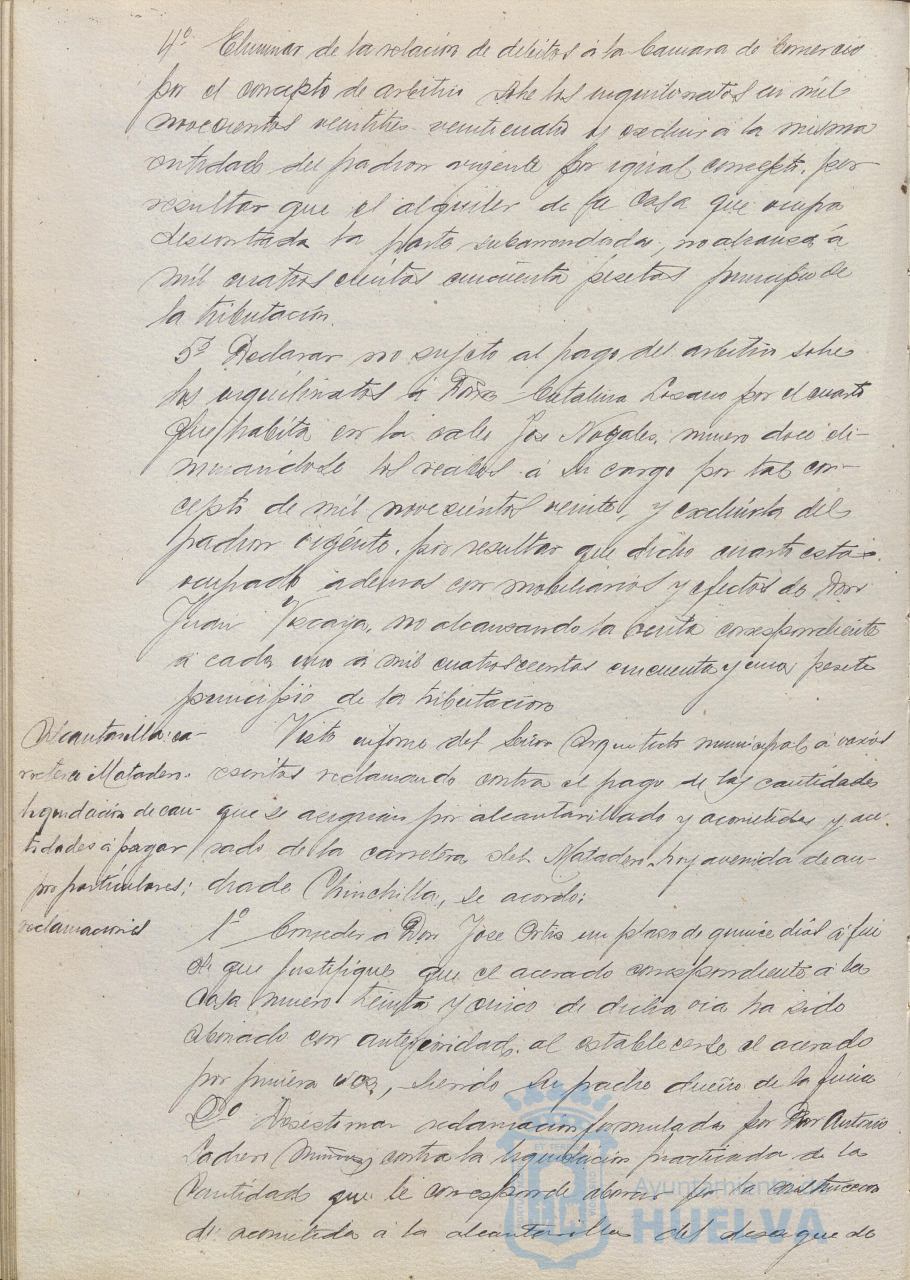 4º Eliminar de la relación de débitos á la Camara de Comercio
por el concepto de arbitrio sobre los inquilinatos en mil
novecientos veintitres veinticuatro y excluir á la misma
entidad del padron vigente por igual concepto, por
resultar que el alquiler de la casa que ocupa
descontada la parte subarrendada, no alcanza á
mil cuatrocientos cincuenta pesetas principio de
la tributación.
5º Declarar no sujeto al pago del arbitrio sobre
los inquilinatos á Doña Catalina Lozano por el cuarto
que habita en la calle Jose Nogales, numero doce eli-
minandose los recibos á su cargo por tal con-
cepto de mil novecientos veinte, y excluirla del
padron vigente, por resultar que dicho cuarto esta
ocupado ademas con mobiliarios y efectos de Don
Juan Vizcaya, no alcanzando la renta correspondiente
á cada uno á mil cuatrocientas cincuenta y una peseta
principio de la tributación
Alcantarilla ca-
rretera Matadero.
liquidación de can-
tidades á pagar
por particulares;
reclamaciones
Visto informe del Señor Arquitecto municipal á varios
escritos reclamando contra el pago de las cantidades
que se asignan por alcantarillado y acometidas y ace-
rado de la carretera del Matadero hoy avenida de an-
drade Chinchilla, se acordo:
1º Conceder a Don Jose Ortiz un plazo de quince dias á fin
de que justifique que el acerado correspondiente á la
casa numero treinta y cinco de dicha via ha sido
abonado con anterioridad al establecerse el acerado
por primera vez, siendo su padre dueño de la finca
2º Desestimar reclamación formulada por Don Antonio
Ladrero Muñoz contra la liquidación practicada de la
cantidad que le corresponde abonar por la construccion
de acometida á la alcantarilla del desague de
Ayuntamiento de
HUELVA